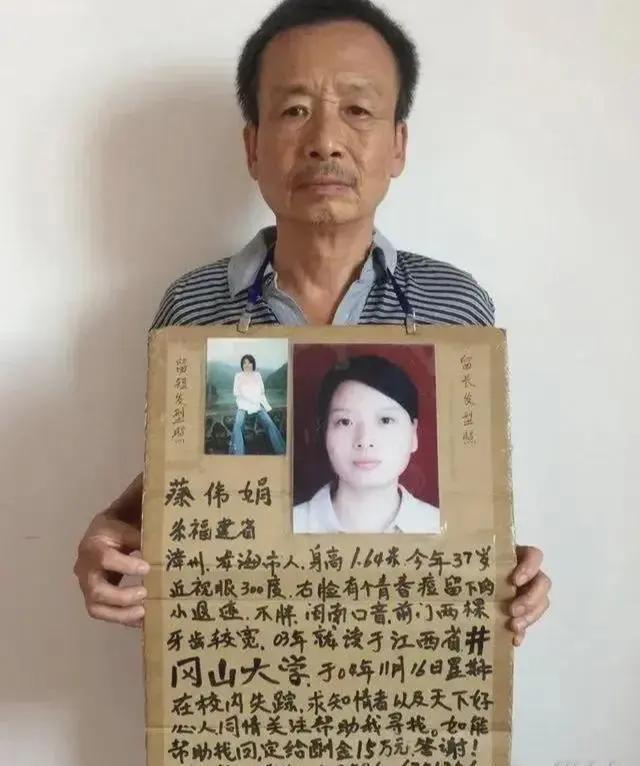 留短发型照
留长发型照
蔡伟娟
系福建省
漳州.龙海市人.身高1.64米.今年37岁
近视眼300度.右脸有个青春痘留下的
小退迹.不胖.闽南口音.前门两棵
牙齿较宽.03年就读于江西省井
冈山大学于04年11月16日星期
在校内失踪.求知情者以及天下好
心人同情关注帮助我寻找.如能
帮助找回,定给酬金15万元.答谢!